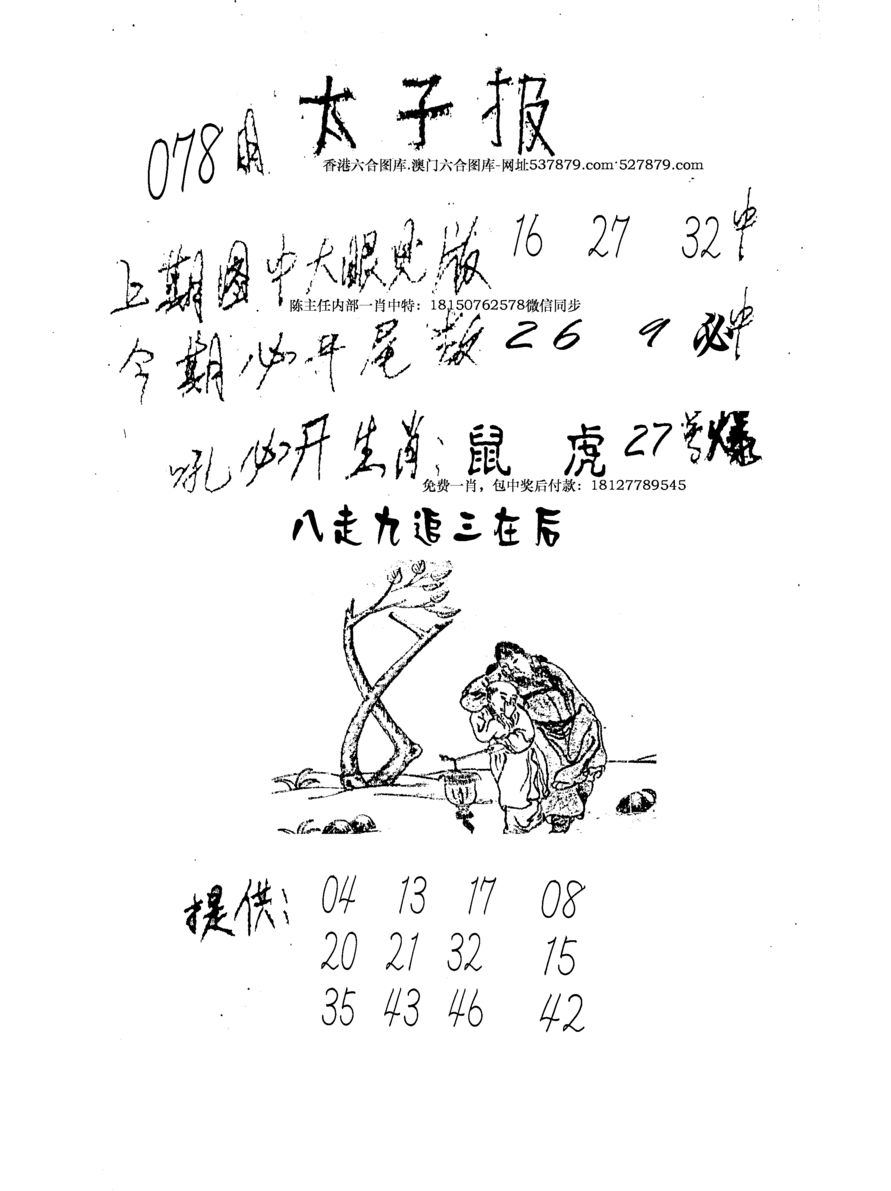 太子报
078期
香港六合图库.澳门六合图库-网址537879.com·527879.com
上期图中大眼见版 16 27 32中
陈主任内部一肖中特：18150762578微信同步
今期必开尾数 2 6 9 必中
必开生肖：鼠 虎 27 爆
免费一肖，包中奖后付款：18127789545
八走九追三在后
提供：04 13 17 08
20 21 32 15
35 43 46 42